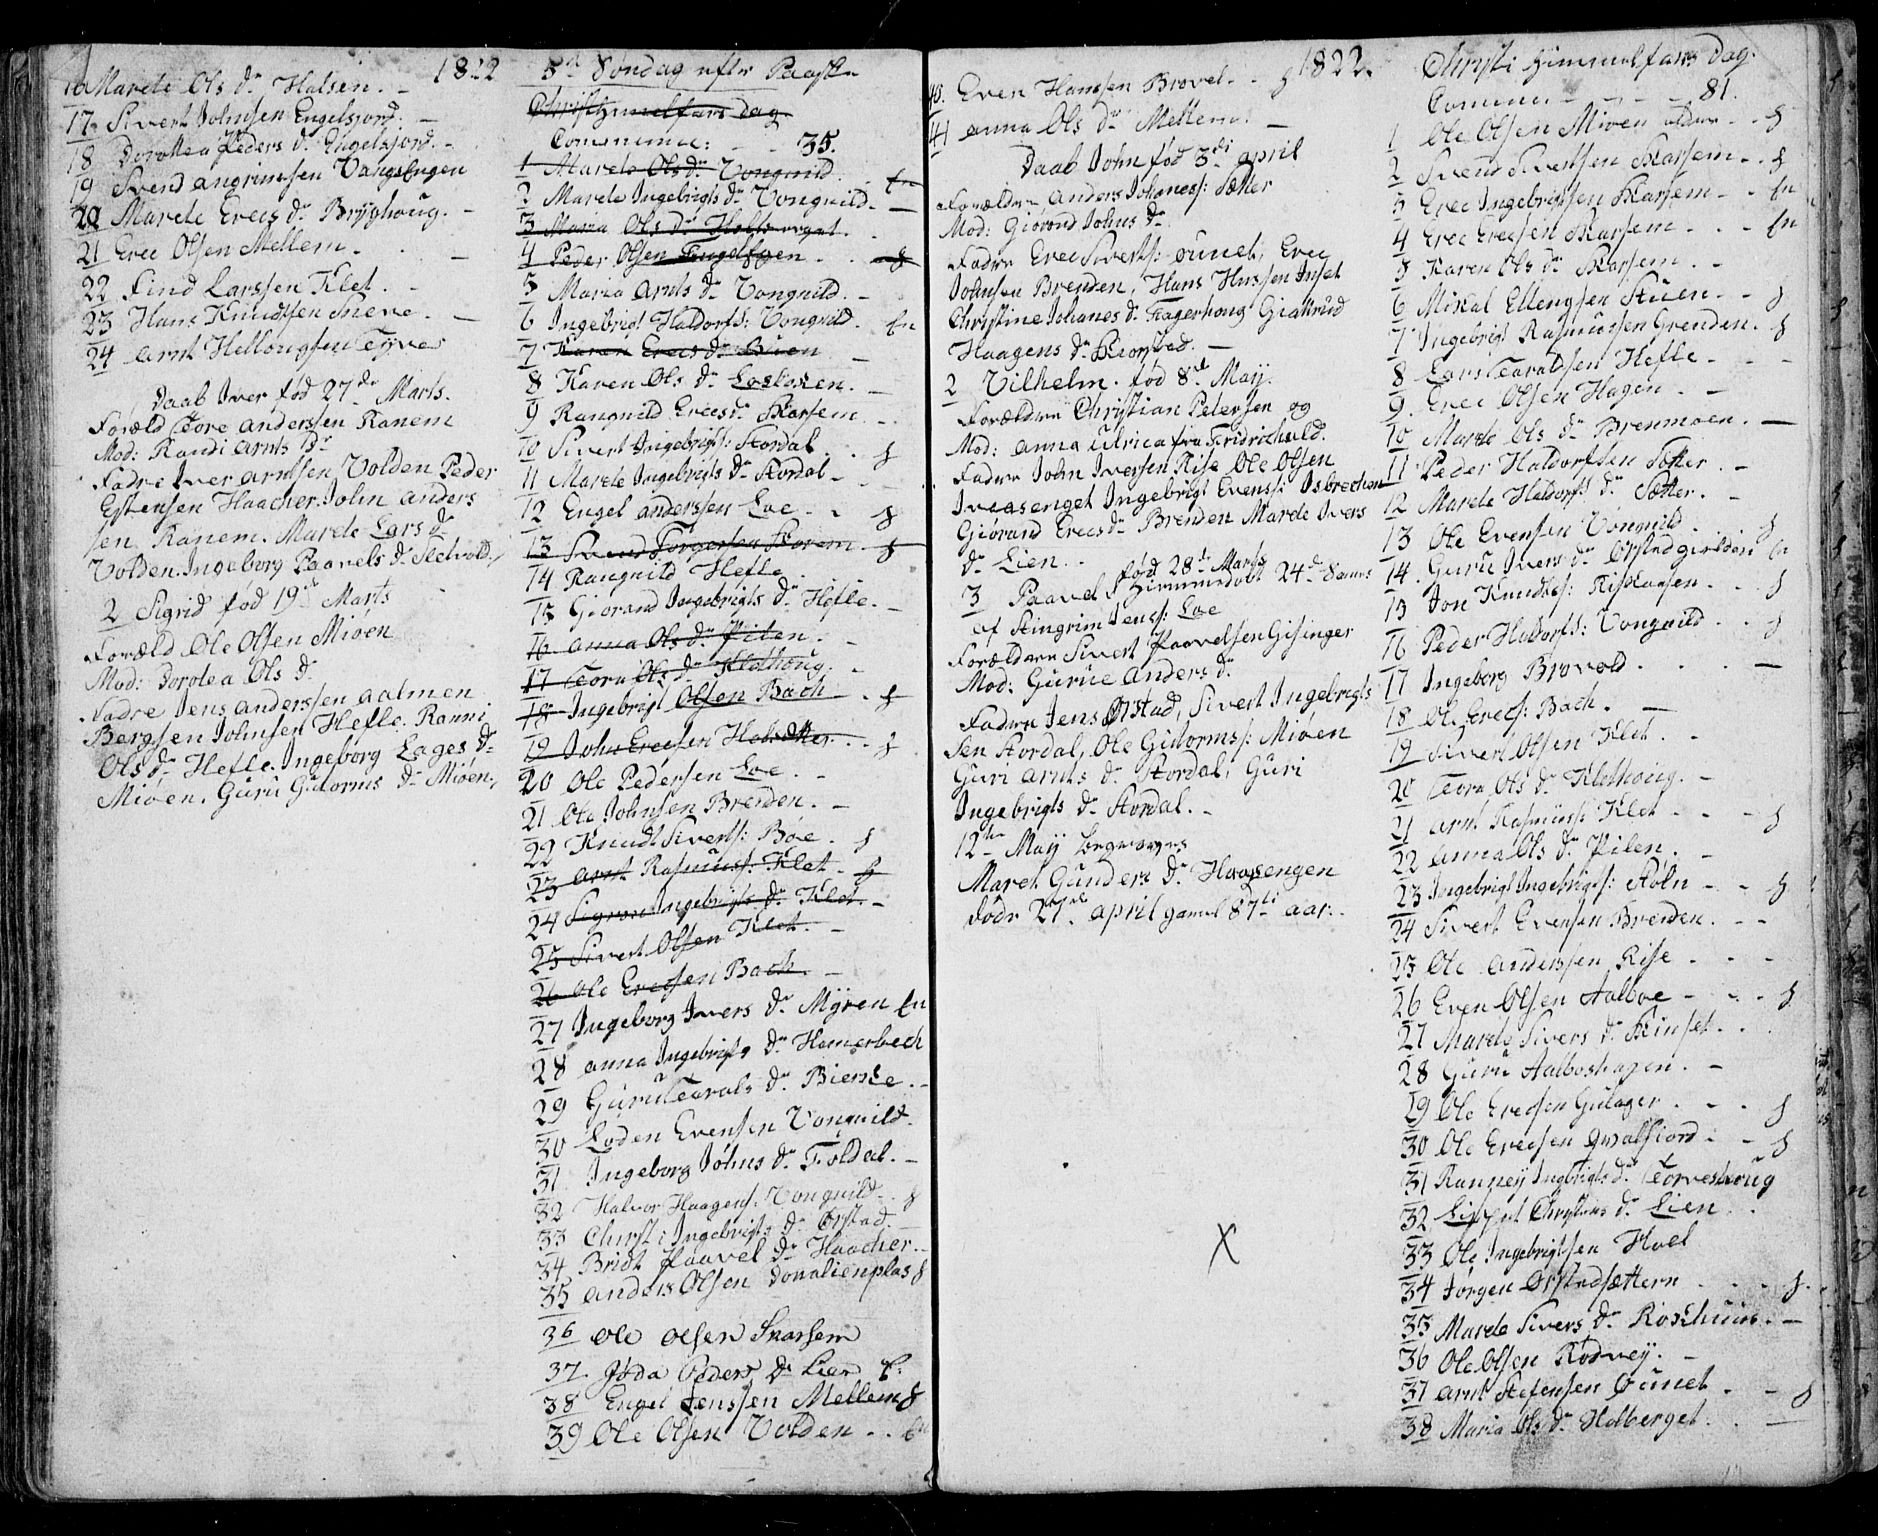 1822
16 Marete Ols dr Halsen. -
17. Sivert Johnsen Engelsjord. -
18 Dorothea Peders dr Engelsjord. -
19 Svend angrimsen Vangs Engen
20 Marete Erecs dr Brÿghoug. -
21 Erec Olsen Mellem - . -
22 Find Larssen Klet. -
23 Hans Knudtsen Sneve. -
24 Arnt Hellougsen
Daab Iver fød 27de Marts.
Foræld Tore anderssen Ranem
Mod: Randi Arnts dr
Fadre Iver arntsen Volden Peder
Estensen Haacher. John anders
sen Ranem. Marete Lars dr
Volden. Ingeborg Paavels dr
2 Sigrid fød 19de Marts
Foræld Ole Olsen Miøen
Mod: Dorotea Ols dr
Fadre Jens anderssen aalmen
Bergsen Johnsen Hefle. Ranni
Ols dr Hefle. Ingeborg Lages dr
Miøen. Guru Gidorms dr Miøen.
5te Søndag efter Paaske
Christi Himmelfars Dag
Commun: - - 35.
1 Marete Ols dr Vongnild
2 Marete Ingebrigts dr Vongnild. -
3 Maria Ols dr
4 Peder Olsen
5 Maria Arnts dr Vongnild. -
6 Ingebrigt Haldorss: Vongnild. fn
7 Karen Erecs dr
8 Karen Ols dr -
9 Rangnild Erecs dr Skarsem -
10 Sivert Ingebrigs: Stordal . . f
11 Marete Ingebrigts dr Stordal - -
12 Engel anderssen Loe . . f
13 Svend Torgersen Storem f
14 Rangnild Hefle
15 Giorand Ingebrigts dr Hefle. -
16 Anna Ols dr Pilen. -
17 Tora Ols dr Klethoug. -
18 Ingebrigt Olsen Bach . f
19 John Erecsen . . f
20 Ole Pedersen Loe . -
21 Ole Johnsen Brenden. -
22 Knudt Siverts: Bøe . f
23 Arnt Rasmuss: Klet - f
24 Ingebrigts dr Klet. -
25 Sivert Olsen Klet. -
26 Ole Erecsen Bach. -
27 Ingeborg Ivers dr Mÿren fn
28 anna Ingebrigts dr Hamerbech
29 Guru Tarals dr -
30 Loden Evensen Vongnild.
31 Ingeborg Johns dr Foldal. -
32 Halvor Haagens: Vongnild. . f
33 Christi Ingebrigts dr Ørstad. -
34 Bridt Paavel dr Haacher. -
35 anders Olsen f
36 Ole Olsen Skarsem
37 Peders dr Lien f.
38 Engel Jenssen Mellem f
39 Ole Olsen Volden . . fn
1822.
40. Even Hanssen Brovol. . f
41 anna Ols dr Mellem. -
Daab John fød 3di april
Forældre anders Johaness: Sætter
Mod: Giørond Johns dr
Fadre Erec Siverts: Øunet, Erec
Johnsen Brenden, Hans Hanssen Inset
Christine Johanes dr Fagerhoug Giertrud
Haagens dr -
2 Vilhelm. fød 8de Maÿ.
Forældre Christian Petersen og
Mod: anna Ulrica fra Fridrichald.
Fadre John Iversen Rise Ole Olsen
Ingebrigt Evenss: Isbrechen
Giørand Erecs dr Brenden Marete Ivers
dr Lien. .
fød 28de Marts
3 Paavel Himmedøbt 24de
af Stingrim Jenss: Loe
Forældre Sivert Paavelsen Gisinger
Mod: Gurue Anders dr
Fadre Jens Ørstad, Sivert Ingebrigts
sen Stordal, Ole Gidormss: Miøen
Guri Arnts dr Stordal, Guri
Ingebrigts dr Stordal. -
12te Maÿ Begraves
Maret Gunders dr Haasengen
døde 27de april gamel 87ti aar.
X
Christi Himmelfars Dag.
Commun. - - - 81.
1 Ole Olsen Miøen . . f
2 Svend Sivertsen Skarsem . . f
3 Erec Ingebrigtsen Skarsem - . fn
4 Erec Erecsen Skarsem . . . fn
5 Karen Ols dr Skarsem. -
6 Mikal Ellengsen Stuen. - f
7 Ingebrigt Rasmussen Grenden. f
8 Lars Taraldsen Hefle - - -
9. Erec Olsen Hagen . -
10 Marete Ols dr Brenmoen. -
11 Peder Haldorssen Sætter . -
12 Marete Haldors dr Sætter. -
13 Ole Evensen Vongnild . . f
14. Guru Ivers dr fn
15 Jon Knudtss: . . f
16 Peder Haldorss: Vongnild . . f
17 Ingeborg Brovold. . . . -
18 Ole Erecs: Bach. . -
19 Sivert Olsen Klet . -
20 Tora Ols dr Klethoug. -
21 Arnt Rasmuss: Klet . - - f
22 anna Ols dr Pilen. -
23 Ingebrigt Ingebrigts: Støln - - f
24 Sivert Evensen Brenden. - -
25 Ole Anderssen Rise . - -
26 Even Olsen Aalboe - . . f
27 Marete Sivers dr . .
28 Guru Aalboshagen . -
29 Ole Erecsen Gulager . . . f
30 Ole Erecsen - f
31 Ranneÿ Ingbrigts dr
32 dr Lien. . .
33 Ole Ingebrigtsen Hoel
34 Jørgen Ørstadsættern . . . f.
35 Marete Sivers dr Roskhuus. -
36 Ole Olsen Rodveÿ. -
37 Arnt Stefensen Øunet . - f
38 Maria Ols dr Holberget. . -